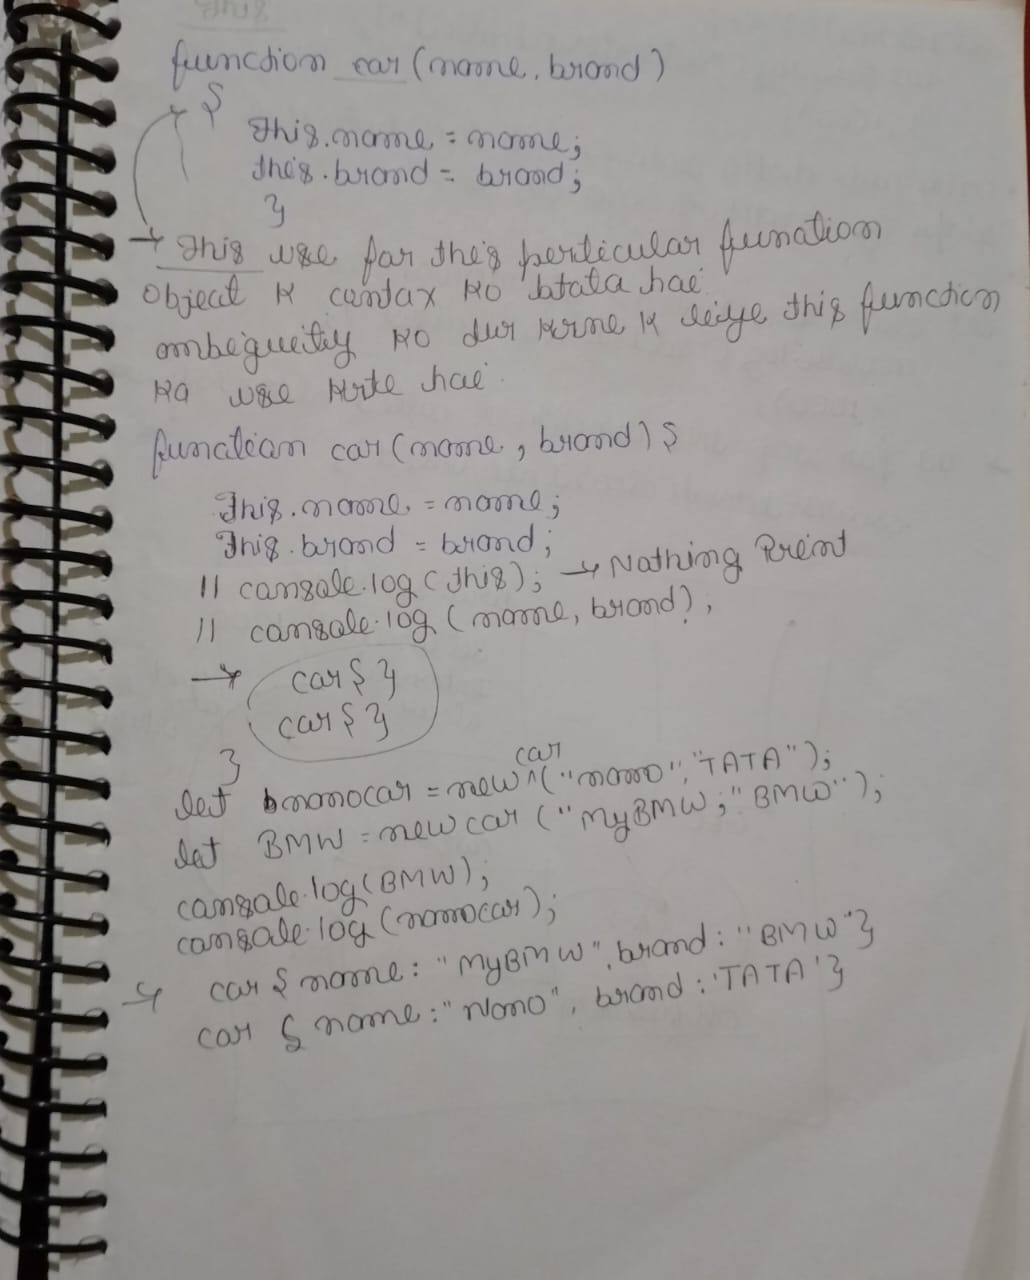 This
function car (name, brand)
{
this.name = name;
this.brand = brand;
}
→ This use for this perticular function
Object K contax Ko btata hae
ambegueity Ko dur Krne K leiye this function
Ka use Krte hae
function car (name, brand) {
This.name = name;
This.brand = brand;
// console.log(this); → Nothing Preint
// console.log (name, brand);
→ car { }
car { }
}
let nanocar = new car ("nano", "TATA");
let BMW = new car ("MyBMW", "BMW");
console.log(BMW);
console.log(nanocar);
→ car { name: "MyBMW", brand: "BMW"}
car { name: "Nano", brand: 'TATA'}